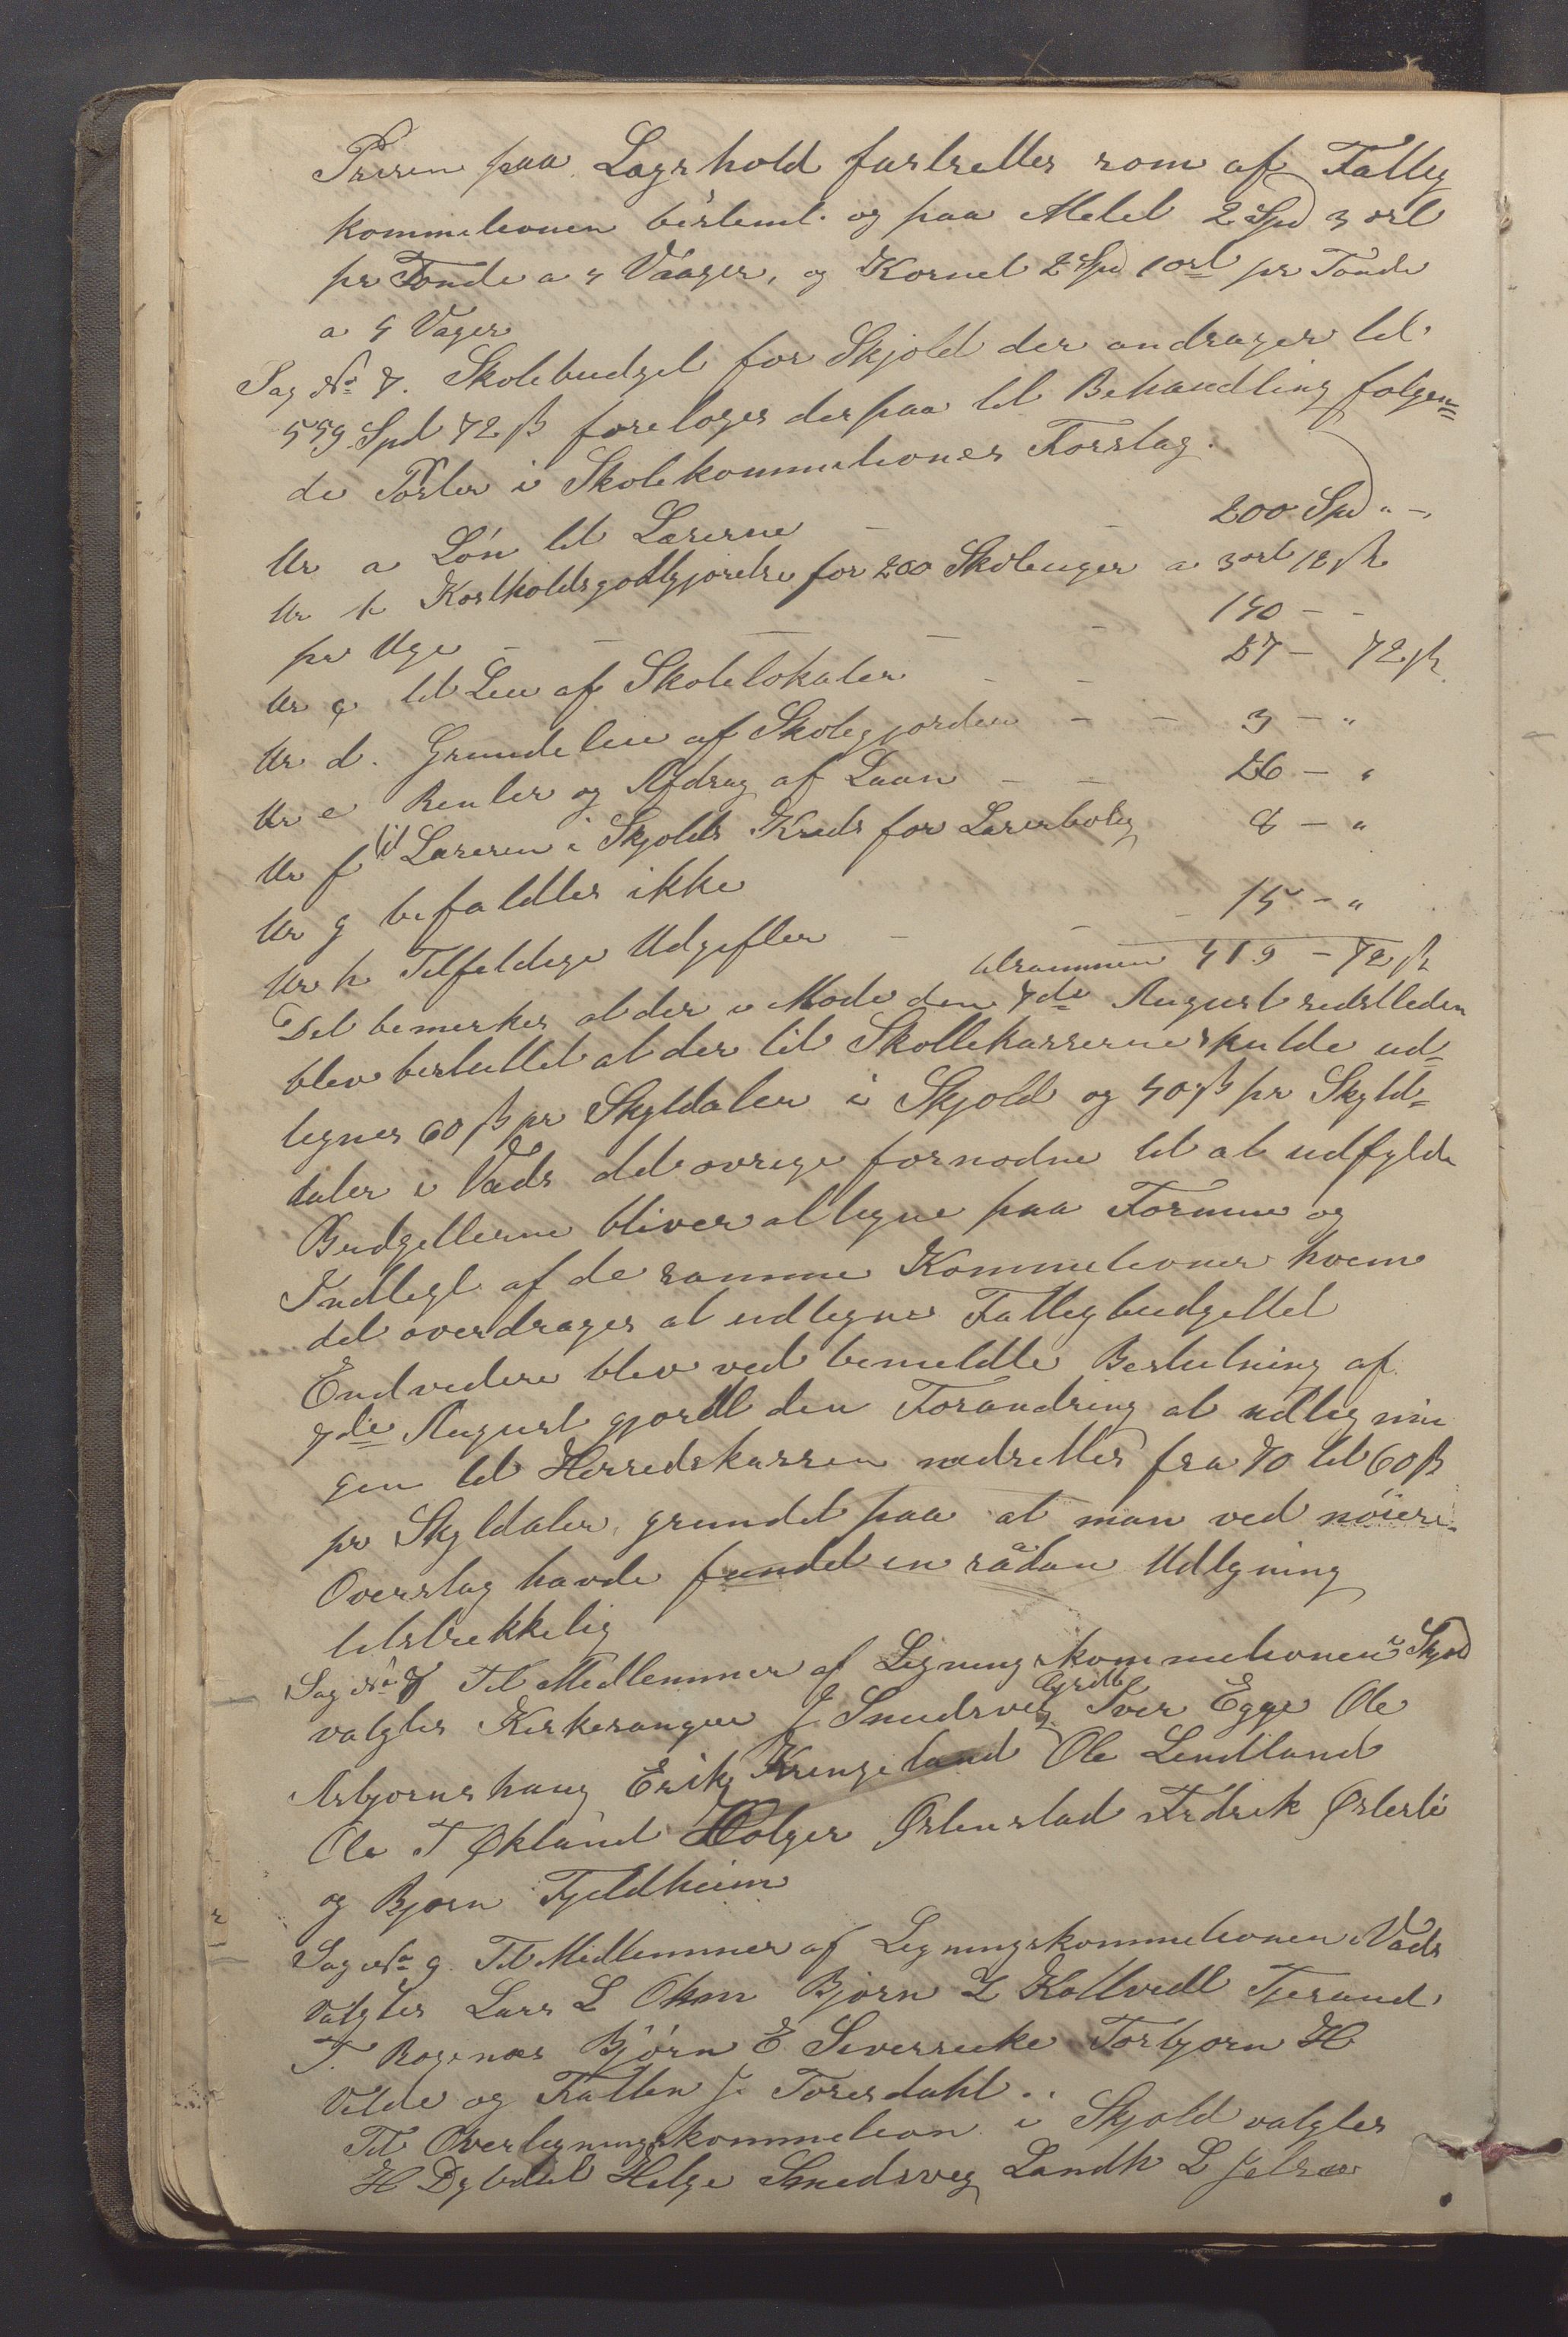 Prisen paa Lægshold fastsettes som af Fattig
kommitionen bestemt og paa Melet 2 Spd 3 ort
pr Tønde a 4 Vaager, og Kornet 2 Spd 1 ort pr Tønde
a 4 Vager
Sag No 7. Skolebudget for Skjold der andrager til
559 Spd 72 ß foretoges derpaa til Behandling følgen=
de Poster i Skolekommitiones Forslag.
Nr a Løn til Lærerne - - 200 Spd " -
Nr b Kostholdsgodtgjørelse for 200 Skoleuger a 3 ort 12 ß
pr Uge - - - - 140 - -
Nr c til Leie af Skolelokaler - - 27 - 72 ß
Nr d. Grundeleie af Skolegjorden - - 3 - "
Nr e Renter og Afdrag af Laan - - 26 - "
Nr f til Læreren i Skjolds Kreds for Lærerbolig 8 - "
Nr g befaldtes ikke
Nr h Tilfeldige Udgifter - - - 15 - "
tilsammen 419 - 72 ß
Det bemerkes at der i Møde den 7de August sidstleden
blev besluttet at der til Skollekasserne skulde ud=
lignes 60 ß pr Skyldaler i Skjold og 40 ß pr Skyld=
daler i Vads det øvrige fornødne til at udfylde
Budgetterne bliver at ligne paa Formue og
Indtegt af de samme Kommitioner hvem
det overdrages at udligne Fattigbudgettet
Endvidere blev ved bemeldte Beslutning af
7de August gjordt den Forandring at udlignin
gen til Herredskassen nedsettes fra 70 til 60 ß
pr Skyldaler, grundet paa at man ved nøiere
Overslag havde fundet en sådan Udligning
tilstrekkelig
Sag No 8 Til Medlemmer af Ligningskommitionen i Skjold
valgtes Kirkesanger J. Smedsvig Iver Egge Ole
Asbjørnshaug Erik Kringeland Ole Lindland
Ole T Økland Holger Østenstad Fredrik Østerli
og Bjørn Fjeldheim
Sag No 9. Til Medlemmer af Ligningskommitionen i Vads
valgtes Lars L Ohm Bjørn L Kallvedt Tjerand
T. Røgenæs Bjørn E. Siverscike Torbjørn H
Velde og J. Torsdahl.
Til Overligningskommition i Skjold valgtes
H Dybdal Helge Smedsveg Landh L Jelsæ